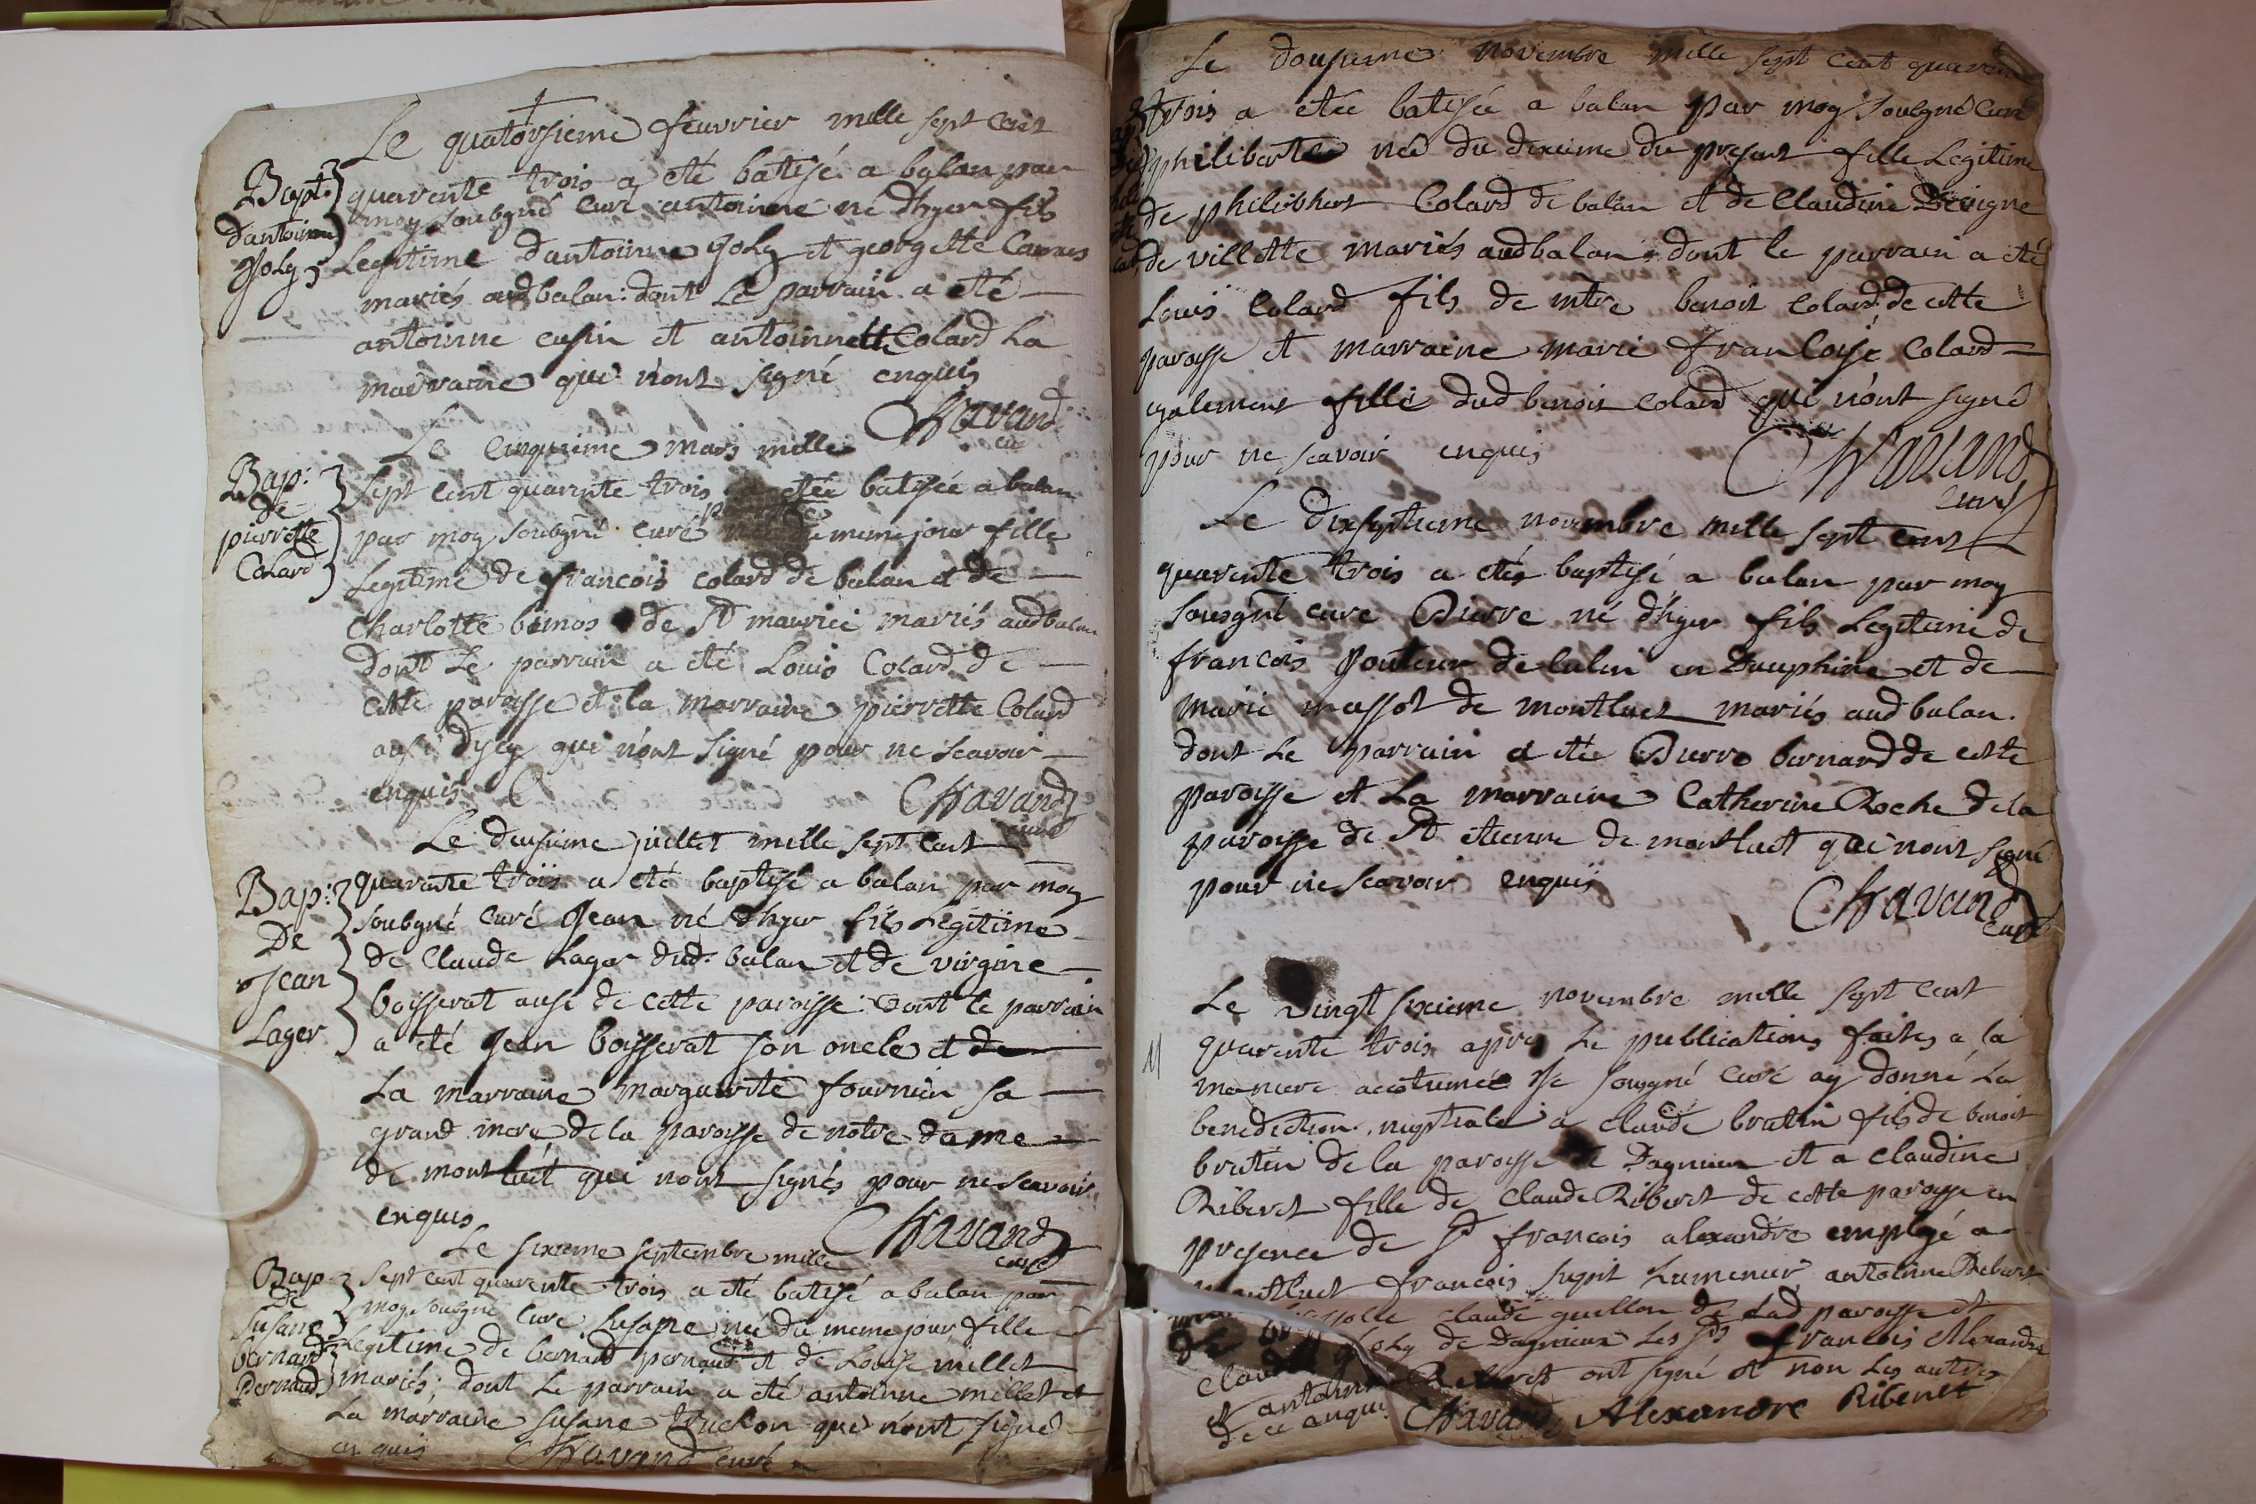 Le quatorsieme feuvrier mille sept cent
Bapt: quarente trois a eté batisé a balan par
dantoinne moy soubgné curé antoinne né dhyer fils
Joly Legitime dantoinne Joly et georgette
mariés audbalan: dont Le parrain a eté
antoinne cusin et antoinnette Colard La
marraine qui n'ont signé enquis
Chavand
curé
Le cinquieme mars mille
Bap: sept cent quarente trois a etée batisée a balan
de
pierrette par moy soubgné curé pierrette née du meme jour fille
Colard Legitime de francois colard de balan et de
charlotte binos de St maurice mariés audbalan
dont Le parrain a eté Louis Colard de
cette paroisse et la marraine pierrette Colard
ausi dycy qui n'ont signé pour ne scavoir
enquis
Chavand
curé
Le deusieme juillet mille sept cent
Bap: quarente trois a eté baptisé a balan par moy
De soubgné curé Jean né dhyer fils Legitime
Jean de Claude Lager dud. balan et de virginie
Lager boisserat ausi de cette paroisse: Dont le parrain
a eté Jean boisserat son oncle et de
La marraine marguerite fournier sa
grand mere de la paroisse de notre dame
de montluet qui n'ont signés pour ne scavoir
enquis
Chavand
curé
Le sixieme septembre mille
Bap sept cent quarente trois a eté batisé a balan par
de
Susane moy soubgné curé Susane née du meme jour fille
bernard legitime de bernard pernaud et de Louise millet
Pernaud mariés; dont Le parrain a eté antoinne millet et
La marraine susane truchon qui n'ont signé
enquis Chavand curé
Le dousieme novembre mille sept cent quarente
trois a etée batisée a balan par moy soubgné Curé
philiberte née du dixieme du present fille Legitime
de philibbert Colard de balan et de Claudine Devigne
de villette mariés audbalan: dont le parrain a eté
Louis Colard fils de mtre benoit Colard de cette
paroisse et marraine marie francoise Colard
egalement fille dud benoit colard qui n'ont signé
pour ne scavoir enquis
Chavand
curé
Le dixseptieme novembre mille sept cent
quarente trois a etés baptisé a balan par moy
sousgné cure Pierre né dhyer fils Legitime de
francois Jouteur de lulin en Dauphiné et de
marie massot de montluet mariés audbalan.
dont Le parrain a etée Pierre bernard de cette
paroisse et La marraine Catherine Roche de la
paroisse de St etienne de montluet qui n'ont signé
pour ne scavoir enquis
Chavand
curé
Le vingt sixieme novembre mille sept cent
quarente trois apres Le publications faites a la
maniere accotumée Je sousgné curé ay donné La
benediction nuptiale a claude bratin fils de benoit
bratin de la paroisse de Dagnieu et a claudine
Riberet fille de Claude Riberet de cette paroisse en
presence de Sr francois alexandre employé a
montluet francois humeneur antoinne Riberet
claude guillon de Lad paroisse et
Joly de Dagnieux Les Srs francois Alexandre
et antoinne Riberet ont signé et non Les autres
de ce enquis Chavand Alexandre Riberet